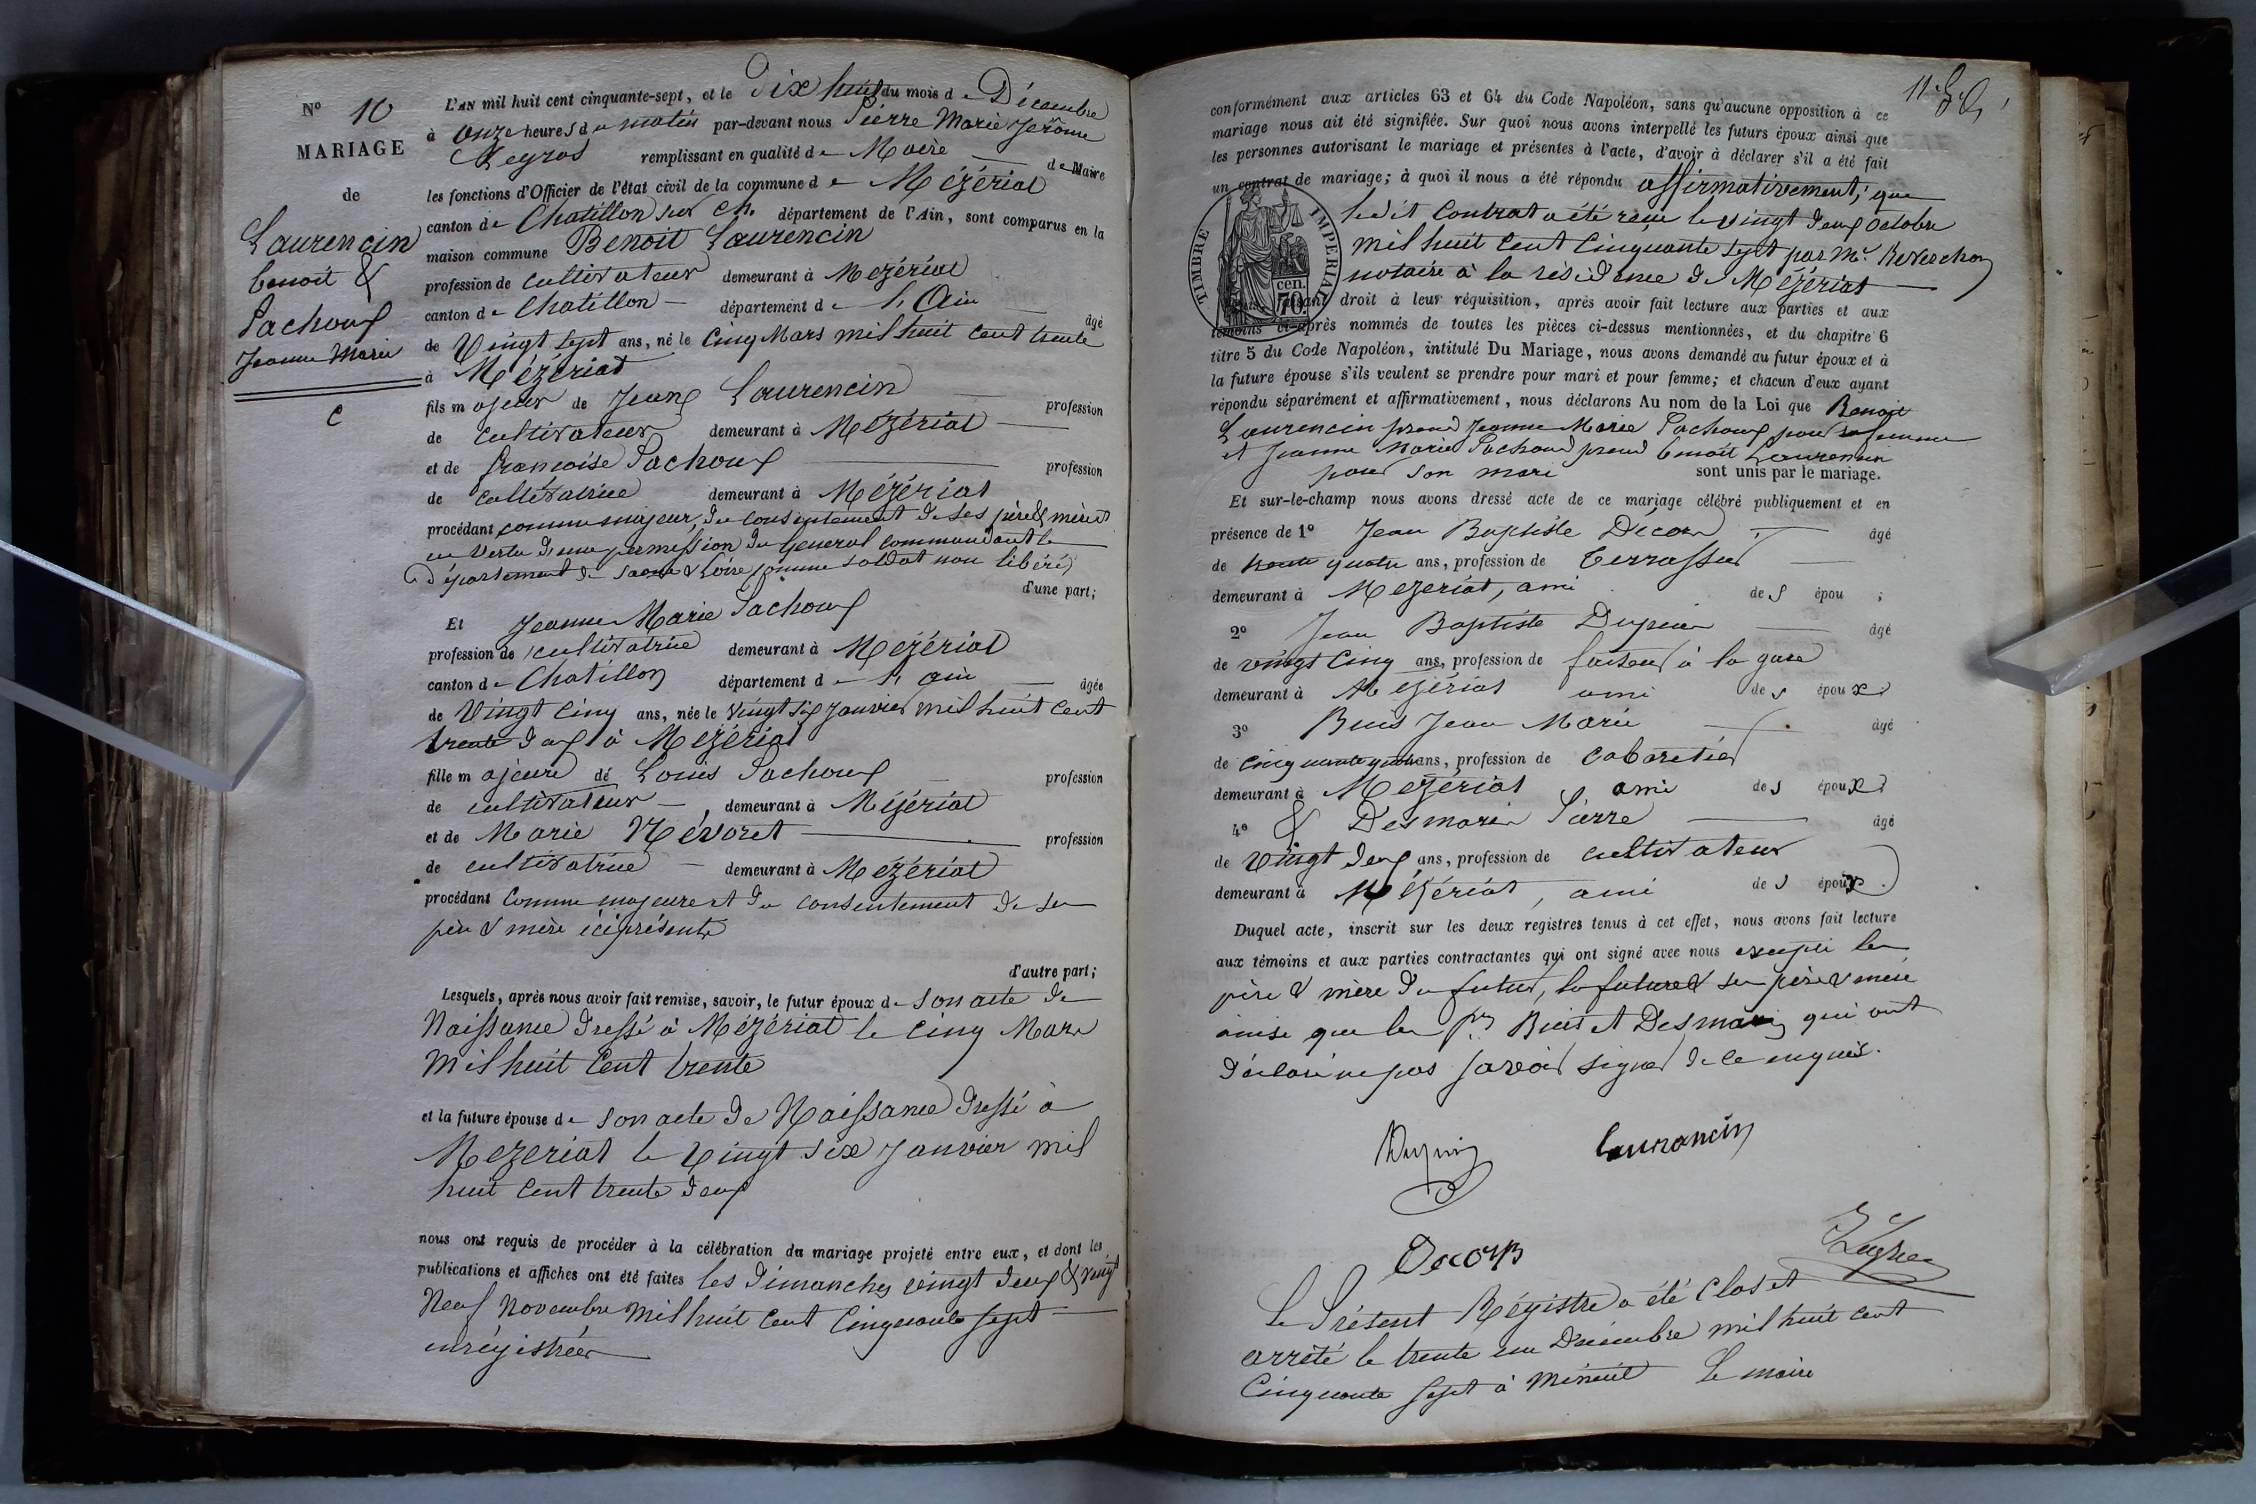 N° 10
MARIAGE
de
Laurencin
benoit &
Pachoux
Jeanne Marie
C
L'AN mil huit cent cinquante-sept, et le Dix huit du mois de Décembre
à onze heures du matin par-devant nous Pierre Marie Jerôme
remplissant en qualité de Maire de Maire
les fonctions d'Officier de l'état civil de la commune de Mézériat
canton de Chatillon sur Ch. département de l'Ain, sont comparus en la
maison commune Benoit Laurencin
profession de cultivateur demeurant à Mezériat
canton de Chatillon département de l'Ain âgé
de Vingt sept ans, né le Cinq Mars mil huit cent trente
à Mézériat
fils majeur de Jean Laurencin profession
de cultivateur demeurant à Mézériat
et de françoise Pachoux profession
de cultivatrice demeurant à Mézériat
procédant comme majeur, du consentement de ses père & mère et
en vertu d'une permission du Général commandant le
département de Saone & Loire comme soldat non libéré
d'une part;
Et Jeanne Marie Pachoux
profession de cultivatrice demeurant à Mézériat
canton de Chatillon département de l'ain âgée
de Vingt Cinq ans, née le vingt six Janvier mil huit cent
trente deux à Mézériat
fille majeure de Louis Pachoux profession
de cultivateur demeurant à Mézériat
et de Marie Névoret profession
de cultivatrice demeurant à Mézériat
procédant comme majeure et du consentement de ses
père & mère ici présents
d'autre part;
Lesquels, après nous avoir fait remise, savoir, le futur époux de son acte de
Naissance dressé à Mézériat le cinq Mars
mil huit Cent trente
et la future épouse de son acte de Naissance dressé à
Mezeriat le Vingt six Janvier mil
huit cent trente deux
nous ont requis de procéder à la célébration du mariage projeté entre eux, et dont les
publications et affiches ont été faites les dimanches vingt deux & vingt
Neuf Novembre mil huit Cent Cinquante sept
enrégistrées
conformément aux articles 63 et 64 du Code Napoléon, sans qu'aucune opposition à ce
mariage nous ait été signifiée. Sur quoi nous avons interpellé les futurs époux ainsi que
les personnes autorisant le mariage et présentes à l'acte, d'avoir à déclarer s'il a été fait
un contrat de mariage; à quoi il nous a été répondu affirmativement; que
ledit Contrat a été reçu le vingt deux octobre
mil huit cent cinquante sept par Me Reverchon
notaire à la résidence de Mézériat
TIMBRE IMPERIAL
70 cen.
faisant droit à leur réquisition, après avoir fait lecture aux parties et aux
témoins ci-après nommés de toutes les pièces ci-dessus mentionnées, et du chapitre 6
titre 5 du Code Napoléon, intitulé Du Mariage, nous avons demandé au futur époux et à
la future épouse s'ils veulent se prendre pour mari et pour femme; et chacun d'eux ayant
répondu séparément et affirmativement, nous déclarons Au nom de la Loi que Benoit
Laurencin prend Jeanne Marie Pachoux pour sa femme
et Jeanne Marie Pachoux prend benoit Laurencin
pour son mari sont unis par le mariage.
Et sur-le-champ nous avons dressé acte de ce mariage célébré publiquement et en
présence de 1° Jean Baptiste Décors âgé
de trente quatre ans, profession de Terrasseur
demeurant à Mezeriat, ami des épou ;
2° Jean Baptiste Dupuis âgé
de vingt Cinq ans, profession de facteur à la gare
demeurant à Mézériat ami des époux
3° Buis Jean Marie âgé
de cinquante quatre ans, profession de Cabaretier
demeurant à Mezériat ami des époux
4° & Desmaris Pierre âgé
de Vingt deux ans, profession de cultivateur
demeurant à Mézériat, ami des époux
Duquel acte, inscrit sur les deux registres tenus à cet effet, nous avons fait lecture
aux témoins et aux parties contractantes qui ont signé avec nous excepté les
père & mère du futur, la future & ses père & mère
ainsi que les Srs Buis et Desmaris qui ont
déclaré ne pas savoir signer de ce enquis.
Dupuis
Laurancin
Decors
Le Présent Régistre a été Clos et
arrêté le trente un Décembre mil huit cent
Cinquante sept à Minuit Le maire